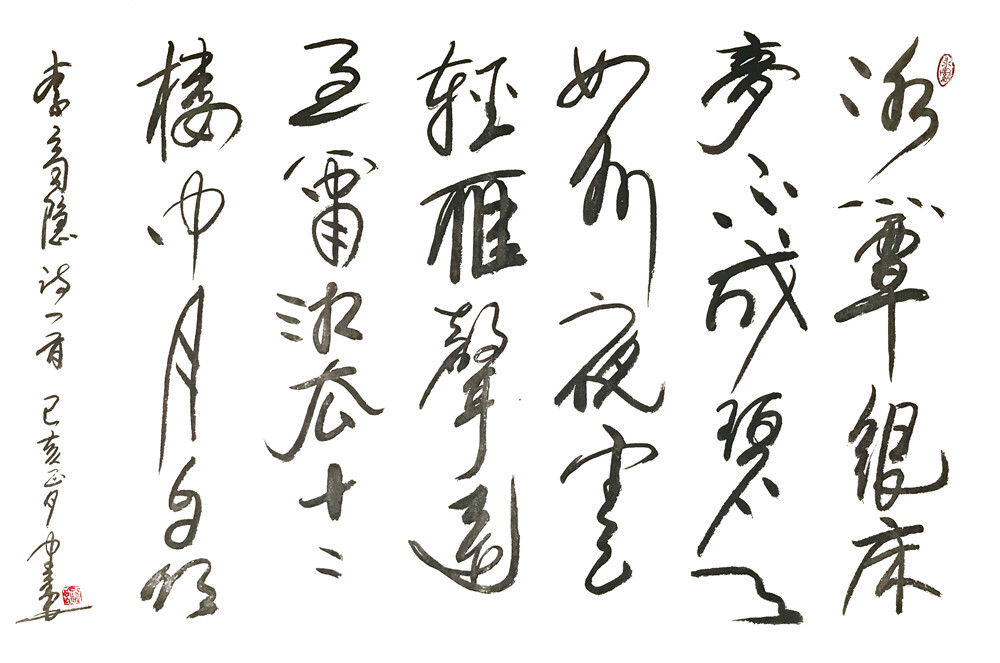 冰簟銀床
夢不成碧天
如水夜雲
輕雁聲遠
過瀟湘去十二
樓中月自明
李商隐诗一首 己亥